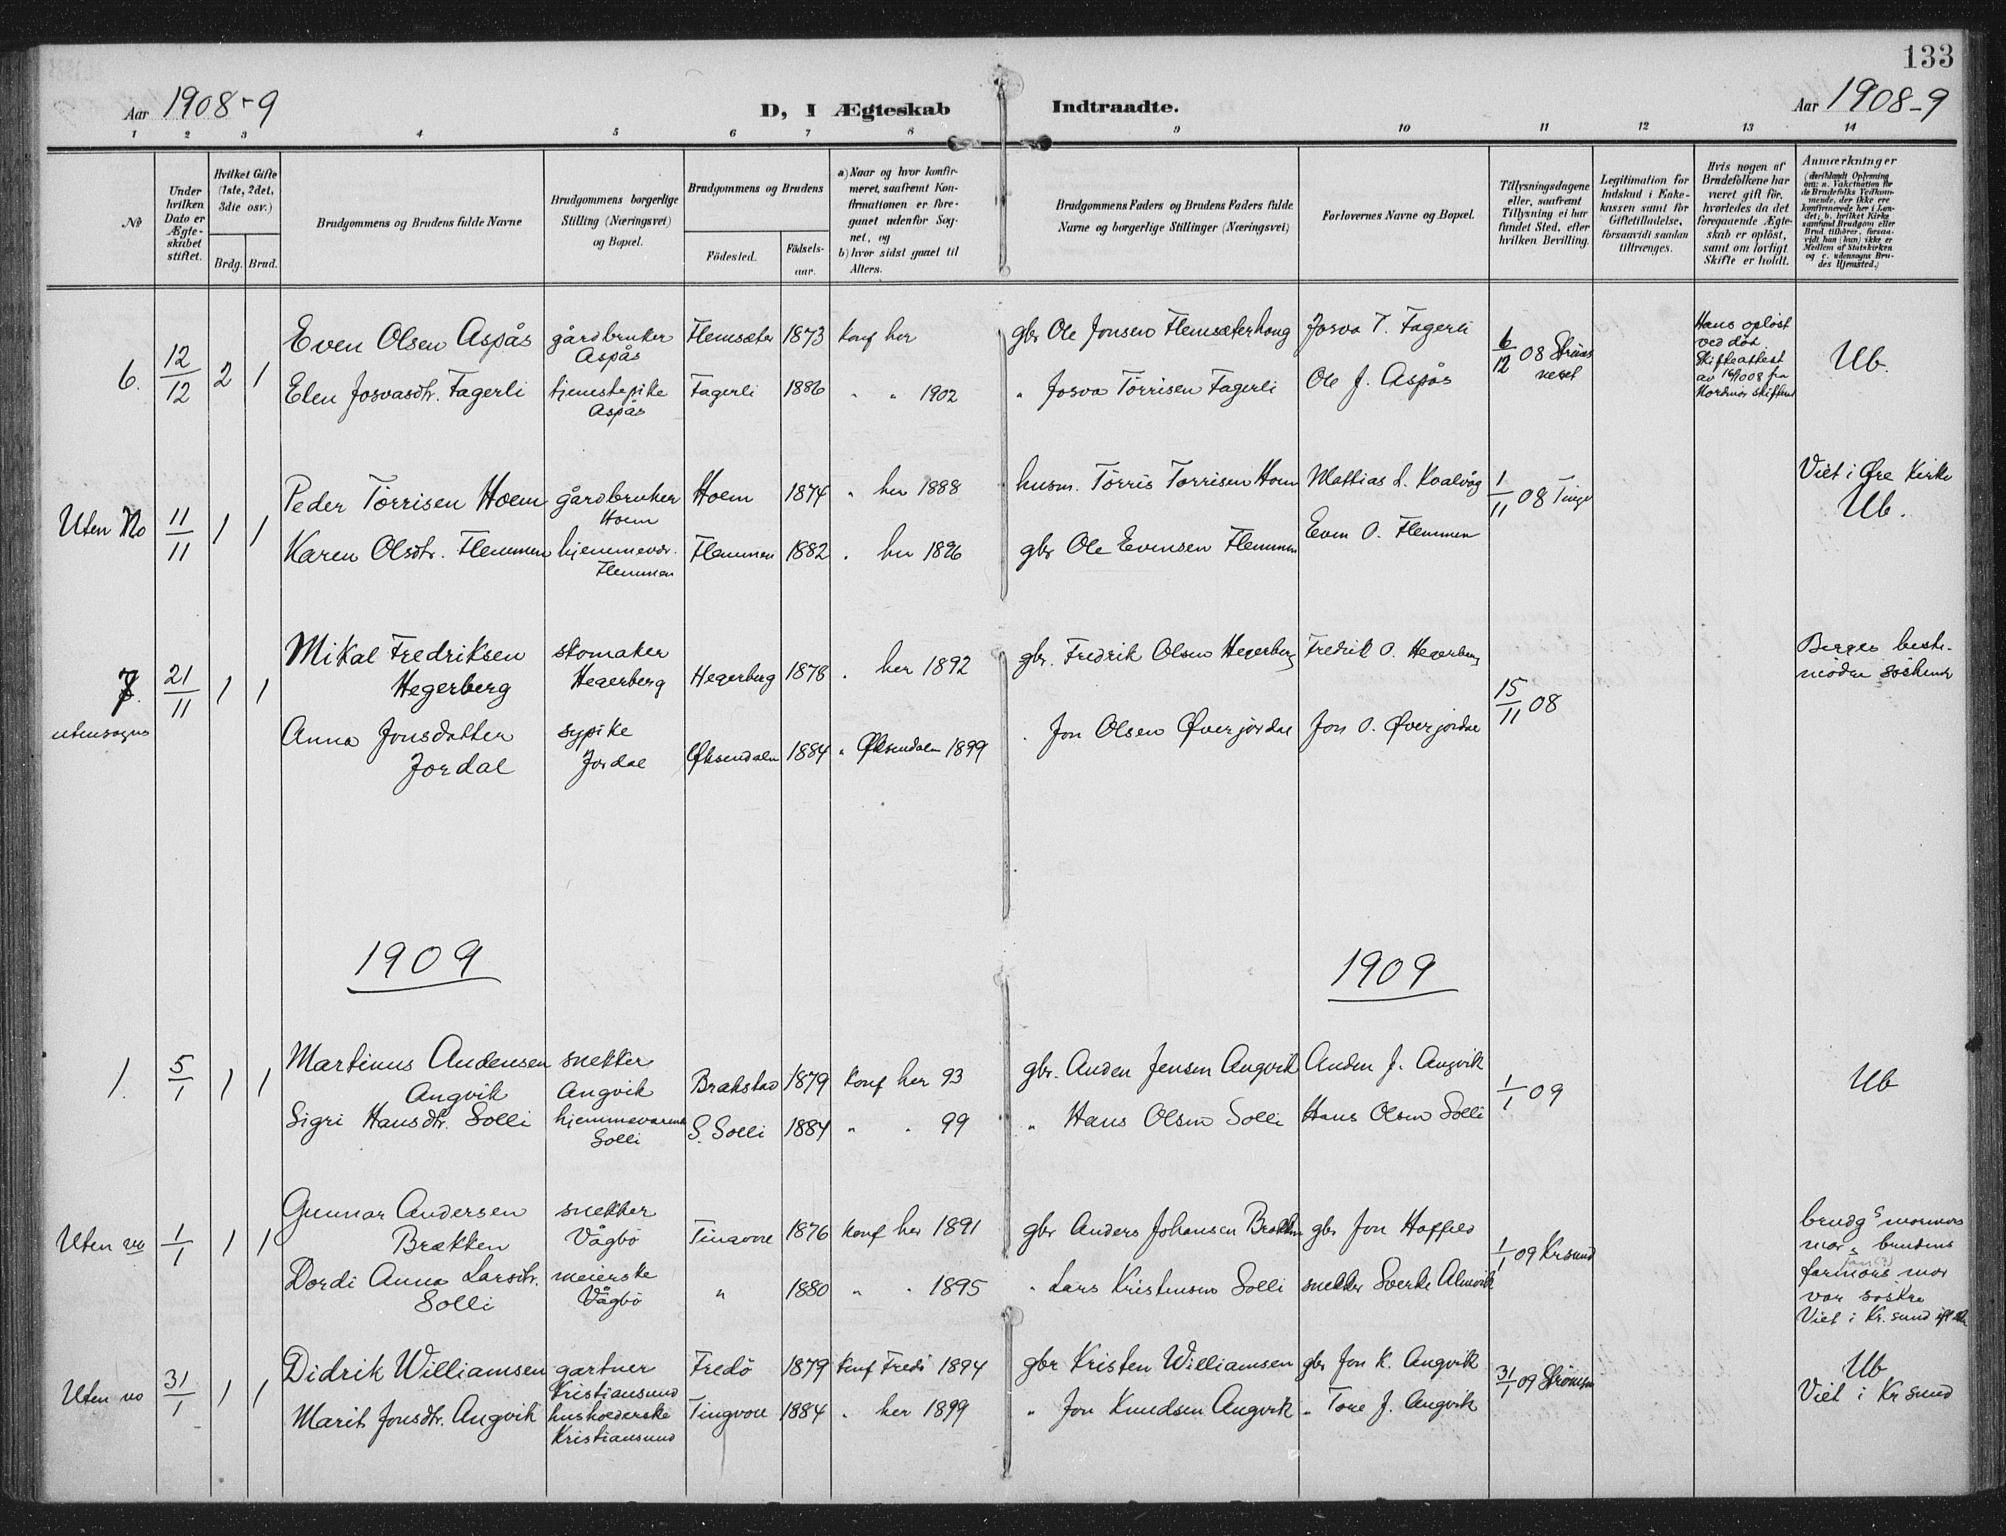 133
Aar 1908-9 D, I Ægteskab Indtraadte. Aar 1908-9
1 2 3 4 5 6 7 8 9 10 11 12 13 14
No
Under hvilken Dato er Ægteskabet stiftet.
Hvilket Gifte (1ste, 2det, 3die osv.)
Brdg. Brud.
Brudgommens og Brudens fulde Navne
Brudgommens borgerlige Stilling (Næringsvei) og Bopæl.
Brudgommens og Brudens
Fødested. Fødselsaar.
a) Naar og hvor konfirmeret, saafremt Konfirmationen er foregaaet udenfor Sognet, og
b) hvor sidst gaaet til Alters.
Brudgommens Faders og Brudens Faders fulde Navne og borgerlige Stillinger (Næringsvei)
Forlovernes Navne og Bopæl.
Tillysningsdagene eller, saafremt Tillysning ei har fundet Sted, efter hvilken Bevilling.
Legitimation for Indskud i Enkekassen samt for Giftetilladelse, forsaavidt saadan tiltrænges.
Hvis nogen af Brudefolkene har været gift før, hvorledes da det foregaaende Ægteskab er opløst, samt om lovligt Skifte er holdt.
Anmærkninger
6. 12/12 2 1
Even Olsen Aspås gårdbruker Aspås Flemsæter 1873 konf her
gbr Ole Jonsen Flemsæterhaug Josva T. Fagerli
Elen Josvasdtr. Fagerli tjenestepike Aspås Fagerli 1886 " " 1902
" Josva Tørrisen Fagerli Ole J. Aspås
6/12 08
Hans opløst
ved død
Skifteattest
Ub.
Uten No 11/11 1 1
Peder Tørrisen Hoem gårdbruker Hoem Hoem 1874 " her 1888
husm. Tørris Tørrisen Hoem Mathias L. Kvalvåg
Karen Olsdtr. Flemmen hjemmevær. Flemmen Flemmen 1882 " her 1896
gbr Ole Evensen Flemmen Even O. Flemmen
1/11 08
Viet i Øre Kirke
Ub.
7. utensogns 21/11 1 1
Mikal Fredriksen Hegerberg skomaker Hegerberg Hegerberg 1878 " her 1892
gbr. Fredrik Olsen Hegerberg Fredrik O. Hegerberg
Anna Jonsdatter Jordal sypike Jordal Øksendalen 1884 " Øksendalen 1899
" Jon Olsen Øverjordal Jon O. Øverjordal
15/11 08
Berges beste-
mødre søskend
1909 1909
1. 5/1 1 1
Martinus Andersen Angvik snekker Angvik Brakstad 1879 konf her 93
gbr. Anden Jensen Angvik Anden J. Angvik
Sigri Hansdtr. Solli hjemmeværende Solli S. Solli 1884 " " 99
" Hans Olsen Solli Hans Olsen Solli
1/1 09
Ub
Uten no 1/1 1 1
Gunnar Andersen Brækken snekker Vågbø Tingvoll 1876 konf her 1891
gbr Anders Johansen Brækken gbr Jon Hoffild
Dordi Anna Larsdtr. Solli meierske Vågbø " 1880 " " 1895
" Lars Kristensen Solli snekker Sverke Almvik
1/1 09 Krsund
brudgs mormors
mor o brudens
farmors mor
var søskre
Viet i Kr.sund
Uten no 31/1 1 1
Didrik Williamsen gartner Kristiansund Fredø 1879 konf Fredø 1894
gbr Kristen Williamsen gbr Jon K. Angvik
Marit Jonsdtr. Angvik husholderske Kristiansund Tingvoll 1884 " her 1899
" Jon Knudsen Angvik " Tore J. Angvik
31/1 09
Ub
Viet i Kr sund